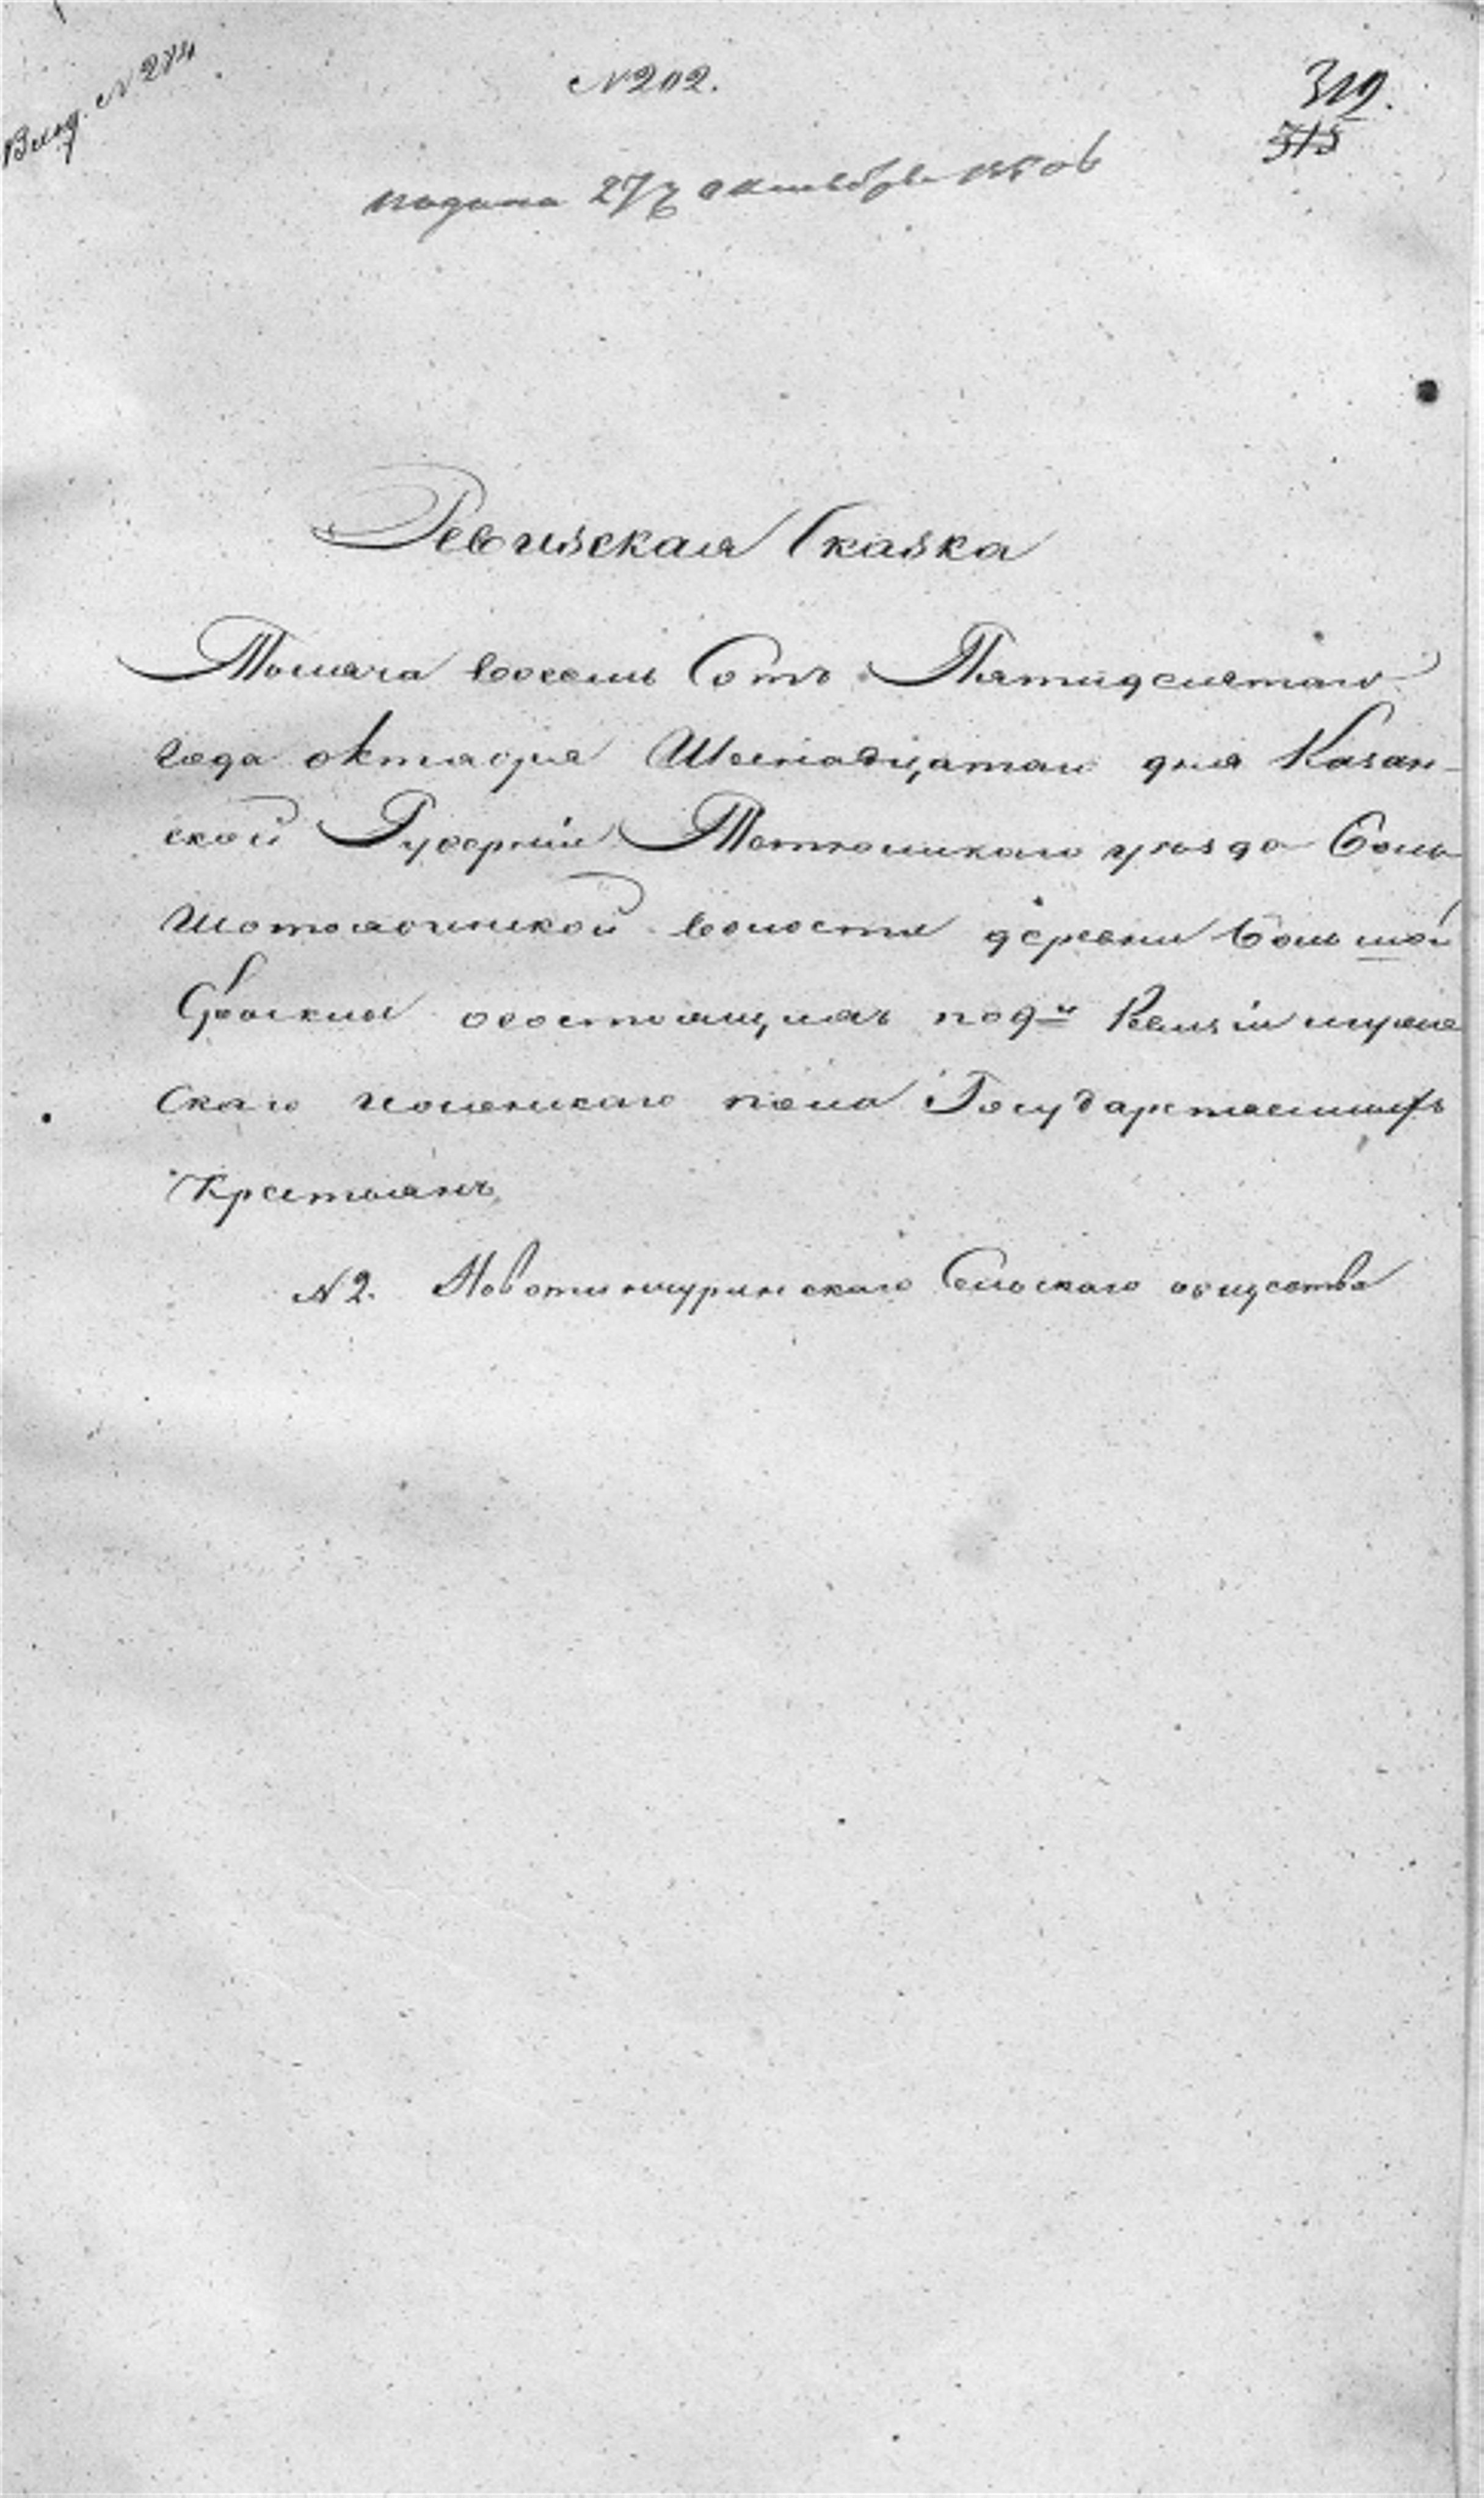 Вход. N 274
N 202.
319.
315
подана 27 октября 1850
Ревизская Сказка
Тысяча восемь Сотъ Пятидесятаго
года октября Шестнадцатаго дня Казан-
ской Губерніи Тетюшскаго уезда Боль
шотоябинской волости деревни Большой
состоящихъ по 9й Ревизіи мужес
скаго и женскаго пола Государственныхъ
Крестьянъ
N 2. Новотинчуринскаго Сельскаго общества